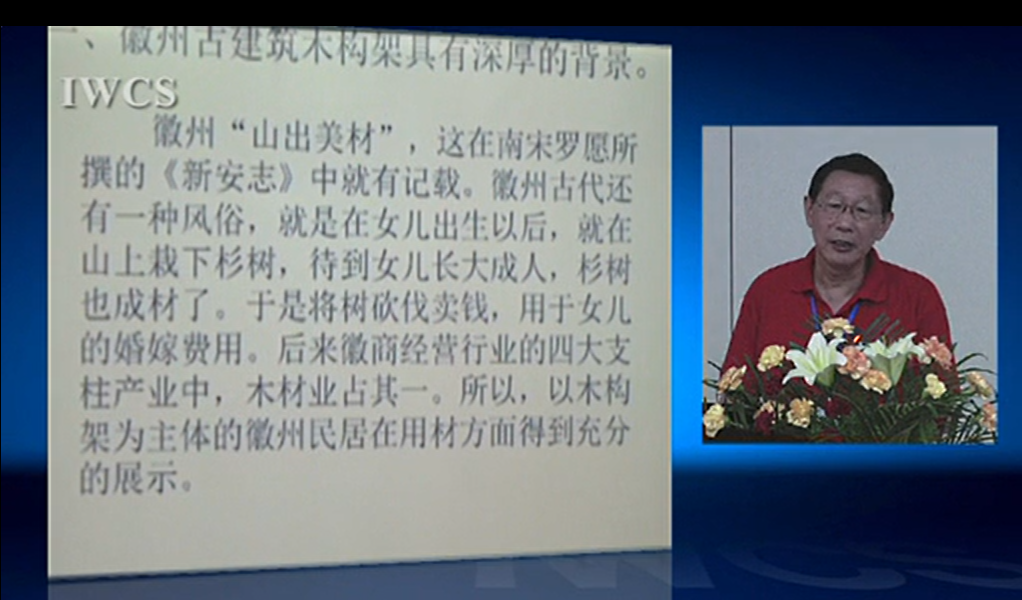 一、徽州古建筑木构架具有深厚的背景。
IWCS
徽州“山出美材”，这在南宋罗愿所
撰的《新安志》中就有记载。徽州古代还
有一种风俗，就是在女儿出生以后，就在
山上栽下杉树，待到女儿长大成人，杉树
也成材了。于是将树砍伐卖钱，用于女儿
的婚嫁费用。后来徽商经营行业的四大支
柱产业中，木材业占其一。所以，以木构
架为主体的徽州民居在用材方面得到充分
的展示。
IWCS